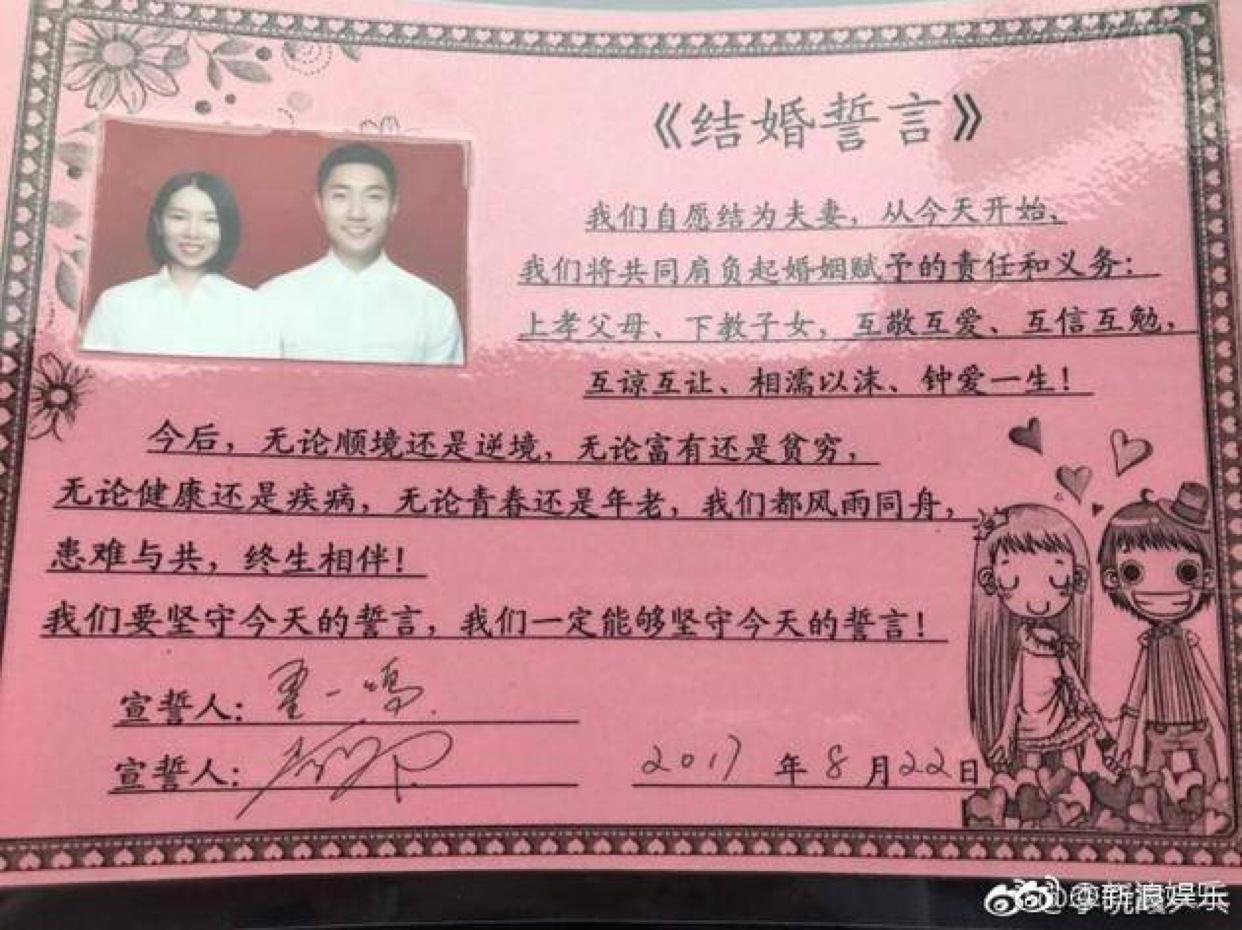 《结婚誓言》
我们自愿结为夫妻，从今天开始，
我们将共同肩负起婚姻赋予的责任和义务：
上孝父母、下教子女，互敬互爱、互信互勉，
互谅互让、相濡以沫、钟爱一生！
今后，无论顺境还是逆境，无论富有还是贫穷，
无论健康还是疾病，无论青春还是年老，我们都风雨同舟，
患难与共，终生相伴！
我们要坚守今天的誓言，我们一定能够坚守今天的誓言！
宣誓人：
宣誓人：
2017年8月22日
@新浪娱乐